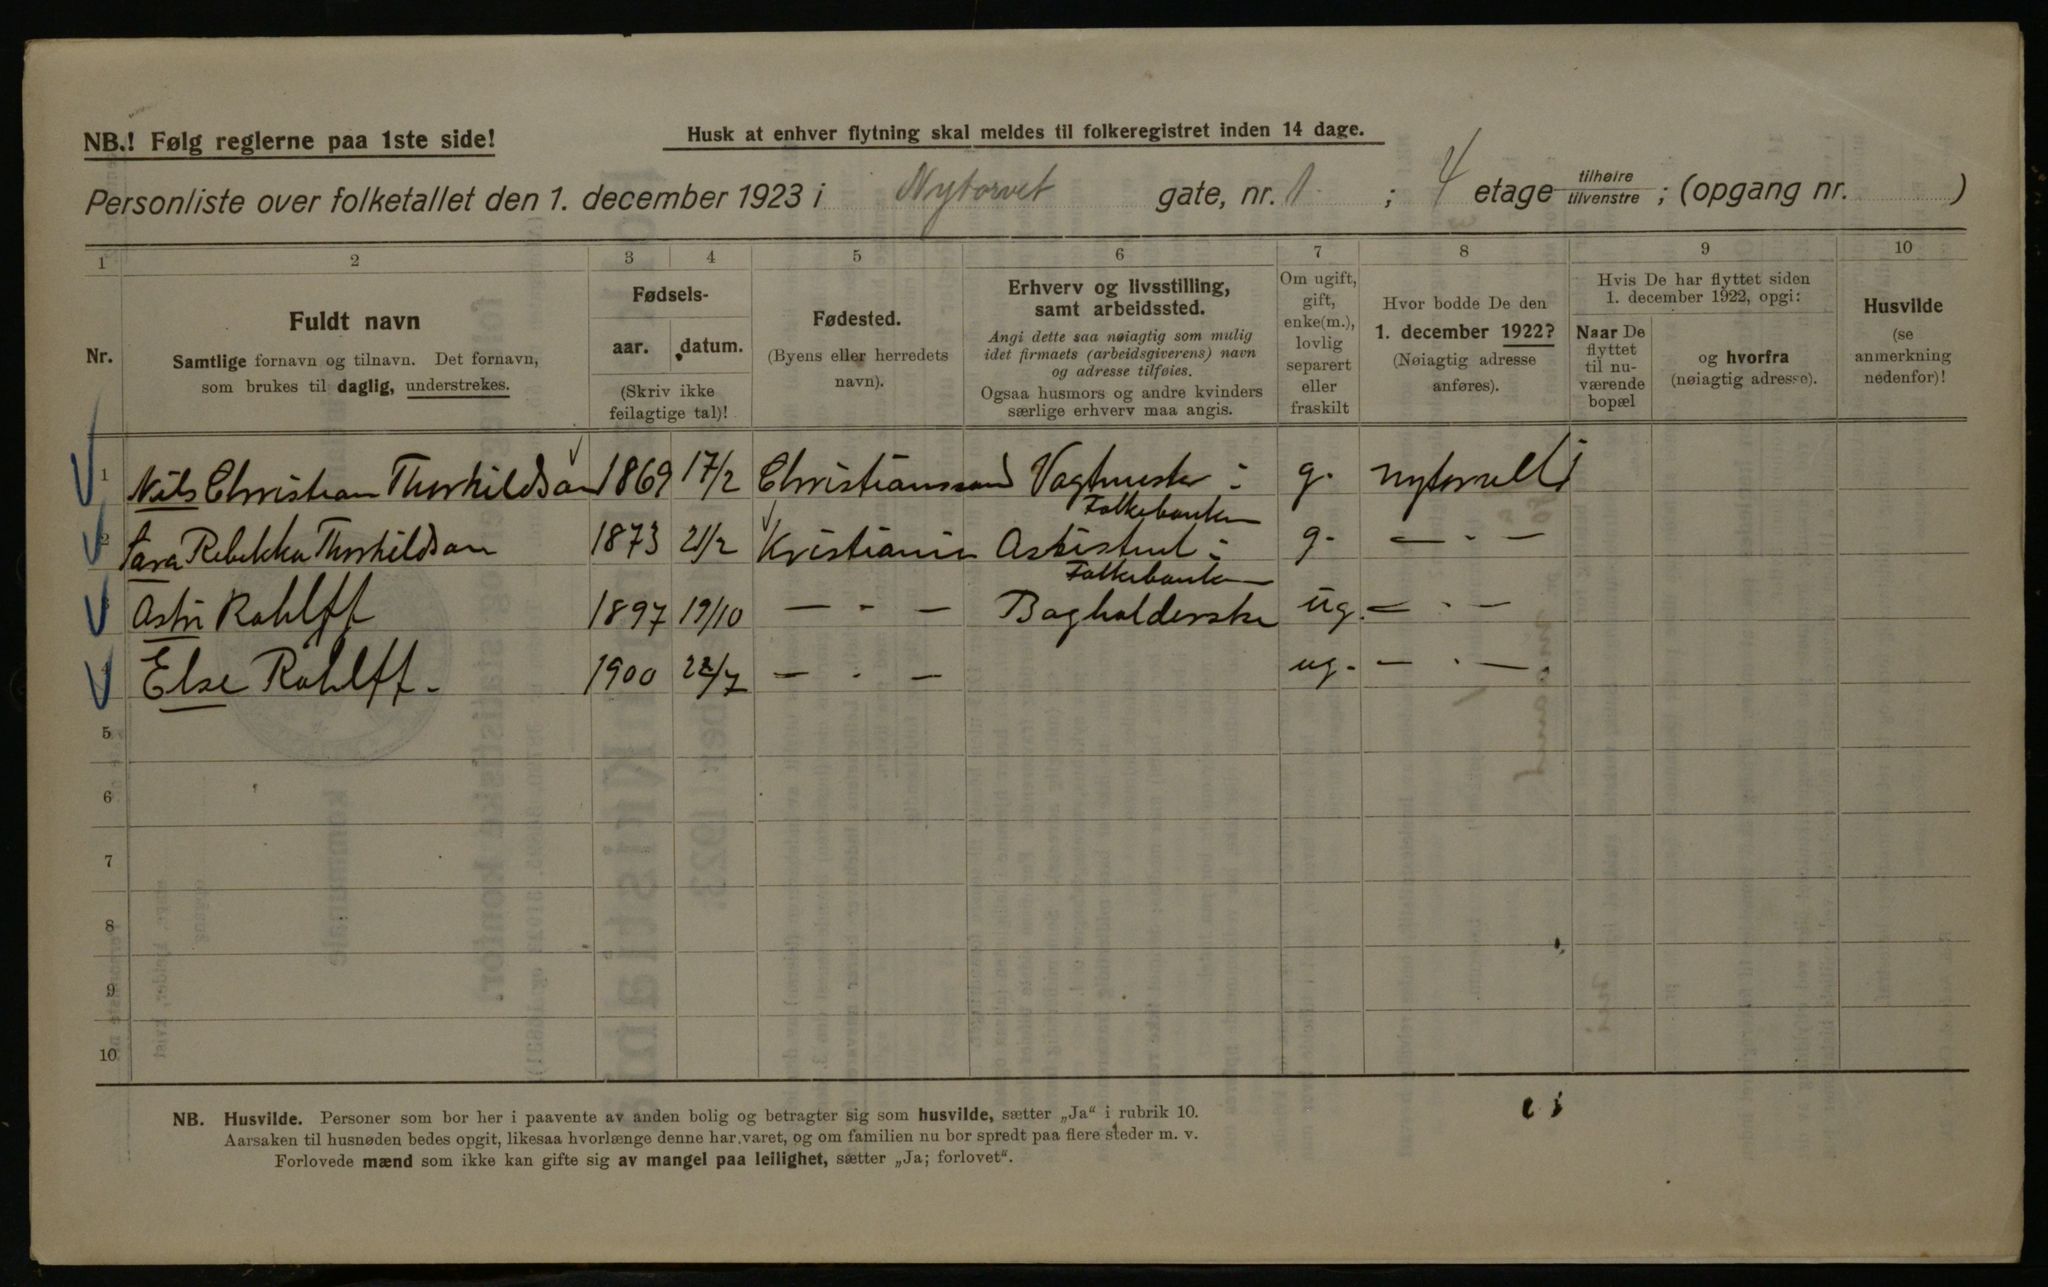 NB.! Følg reglerne paa 1ste side!
Husk at enhver flytning skal meldes til folkeregistret inden 14 dage.
Personliste over folketallet den 1. december 1923 i Nytorvet gate, nr. 1 ; 4 etage tilhøire tilvenstre ; (opgang nr. )
1 2 3 4 5 6 7 8 9 10
Nr.
Fuldt navn
Samtlige fornavn og tilnavn. Det fornavn,
som brukes til daglig, understrekes.
Fødsels-
aar. datum.
(Skriv ikke
feilagtige tal)!
Fødested.
(Byens eller herredets
navn).
Erhverv og livsstilling,
samt arbeidssted.
Angi dette saa nøiagtig som mulig
idet firmaets (arbeidsgiverens) navn
og adresse tilføies.
Ogsaa husmors og andre kvinders
særlige erhverv maa angis.
Om ugift,
gift,
enke(m.),
lovlig
separert
eller
fraskilt
Hvor bodde De den
1. december 1922?
(Nøiagtig adresse
anføres).
Hvis De har flyttet siden
1. december 1922, opgi:
Naar De
flyttet
til nu-
værende
bopæl
og hvorfra
(nøiagtig adresse).
Husvilde
(se
anmerkning
nedenfor)!
1 Nils Christian Thorkildsen 1869 17/2 Christianssand Vagtmester i g. Nytorvet 1
Folkebanken
2 Sara Rebekka Thorkildsen 1873 21/2 Kristiania Assistent i g. — " —
Folkebanken
3 Astri Rohlff 1897 19/10 — " — Bogholderske ug. — " —
4 Else Rohlff. 1900 22/7 — " — ug. — " —
5
6
7
8
9
10
NB. Husvilde. Personer som bor her i paavente av anden bolig og betragter sig som husvilde, sætter „Ja“ i rubrik 10.
Aarsaken til husnøden bedes opgit, likesaa hvorlænge denne har varet, og om familien nu bor spredt paa flere steder m. v.
Forlovede mænd som ikke kan gifte sig av mangel paa leilighet, sætter „Ja; forlovet“.